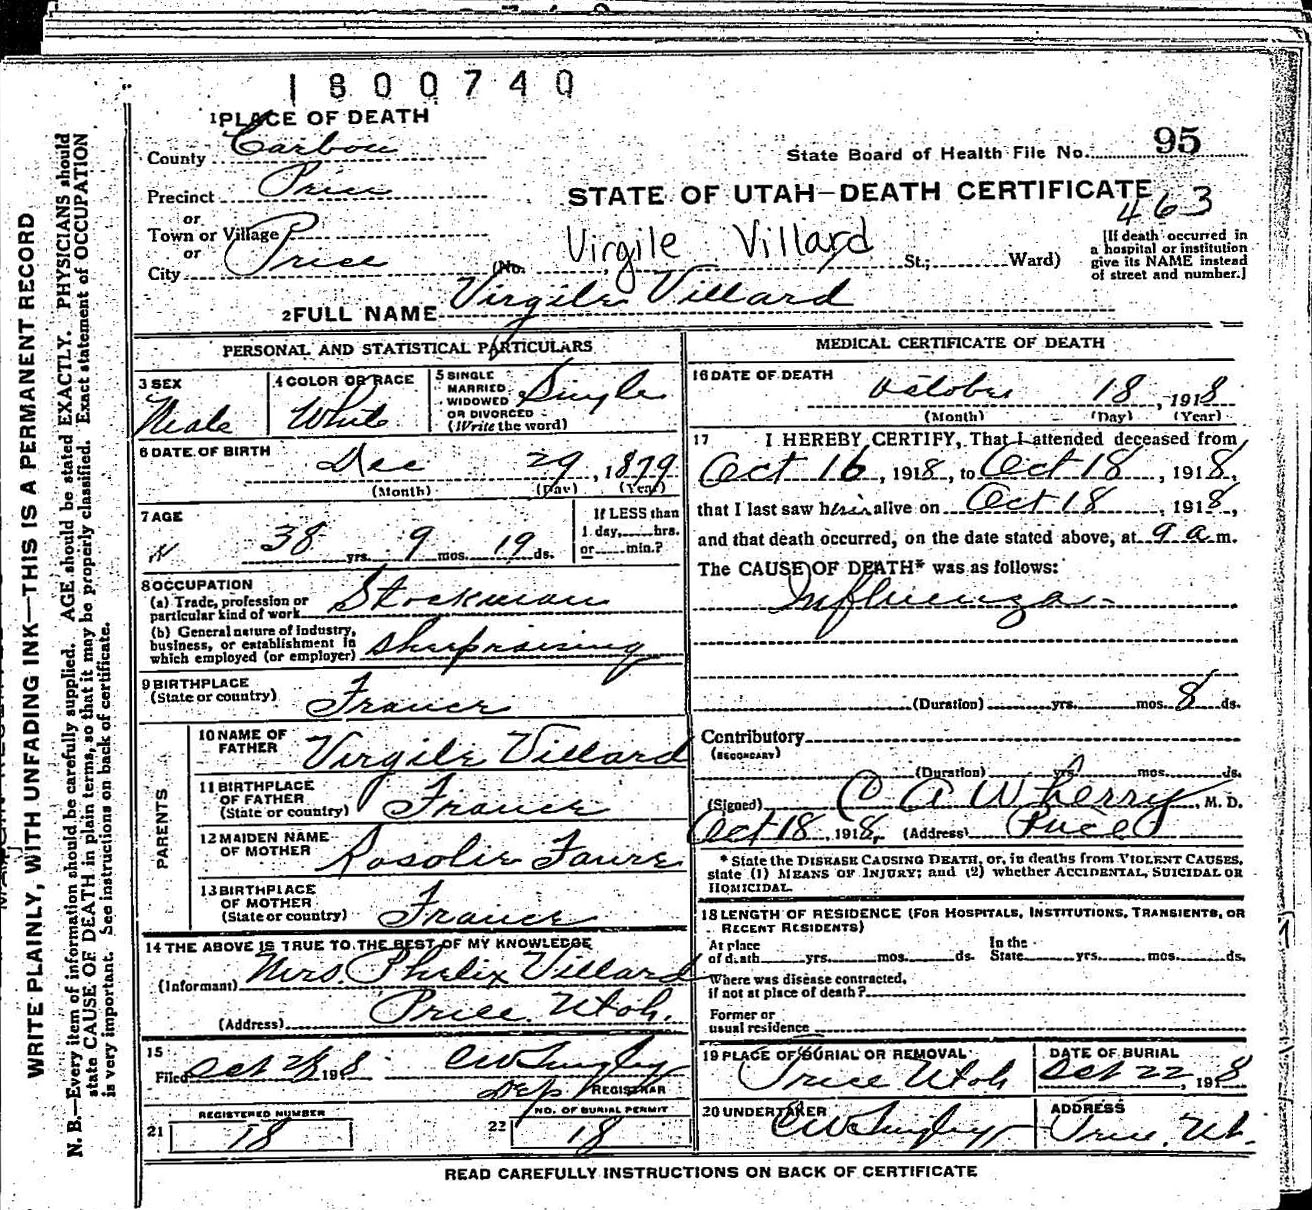 1800740
1 PLACE OF DEATH
County Carbon
State Board of Health File No. 95
Precinct Price
STATE OF UTAH—DEATH CERTIFICATE
463
or
Town or Village
or
City Price
(No. Virgile Villard St.; Ward)
[If death occurred in
a hospital or institution
give its NAME instead
of street and number.]
2 FULL NAME Virgile Villard
PERSONAL AND STATISTICAL PARTICULARS
3 SEX
Male
4 COLOR OR RACE
White
5 SINGLE
MARRIED
WIDOWED
OR DIVORCED
(Write the word)
Single
6 DATE OF BIRTH
Dec 29, 1879
(Month) (Day) (Year)
7 AGE
38 yrs. 9 mos. 19 ds.
If LESS than
1 day, hrs.
or min.?
8 OCCUPATION
(a) Trade, profession or
particular kind of work Stockman
(b) General nature of industry,
business, or establishment in
which employed (or employer) sheepraising
9 BIRTHPLACE
(State or country) France
PARENTS
10 NAME OF
FATHER Virgile Villard
11 BIRTHPLACE
OF FATHER
(State or country) France
12 MAIDEN NAME
OF MOTHER Rosolie Faure
13 BIRTHPLACE
OF MOTHER
(State or country) France
14 THE ABOVE IS TRUE TO THE BEST OF MY KNOWLEDGE
(Informant) Mrs. Phelix Villard
(Address) Price Utah.
15
Filed Oct 28 1918
Dep REGISTRAR
REGISTERED NUMBER
21 18
NO. OF BURIAL PERMIT
22 18
MEDICAL CERTIFICATE OF DEATH
16 DATE OF DEATH
October 18, 1918
(Month) (Day) (Year)
17 I HEREBY CERTIFY, That I attended deceased from
Oct 16, 1918, to Oct 18, 1918,
that I last saw him alive on Oct 18, 1918,
and that death occurred, on the date stated above, at 9 a m.
The CAUSE OF DEATH* was as follows:
Influenza
(Duration) yrs. mos. 8 ds.
Contributory
(SECONDARY)
(Duration) yrs. mos. ds.
(Signed) C A Wherry, M. D.
Oct 18, 1918, (Address) Price
* State the DISEASE CAUSING DEATH, or, in deaths from VIOLENT CAUSES,
state (1) MEANS OF INJURY; and (2) whether ACCIDENTAL, SUICIDAL OR
HOMICIDAL.
18 LENGTH OF RESIDENCE (FOR HOSPITALS, INSTITUTIONS, TRANSIENTS, OR
RECENT RESIDENTS)
At place
of death yrs. mos. ds.
In the
State yrs. mos. ds.
Where was disease contracted,
if not at place of death?
Former or
usual residence
19 PLACE OF BURIAL OR REMOVAL
Price Utah
DATE OF BURIAL
Oct 22, 1918
20 UNDERTAKER
ADDRESS
Price, Ut.
READ CAREFULLY INSTRUCTIONS ON BACK OF CERTIFICATE
WRITE PLAINLY, WITH UNFADING INK—THIS IS A PERMANENT RECORD
N. B.—Every item of information should be carefully supplied. AGE should be stated EXACTLY. PHYSICIANS should
state CAUSE OF DEATH in plain terms, so that it may be properly classified. Exact statement of OCCUPATION
is very important. See instructions on back of certificate.